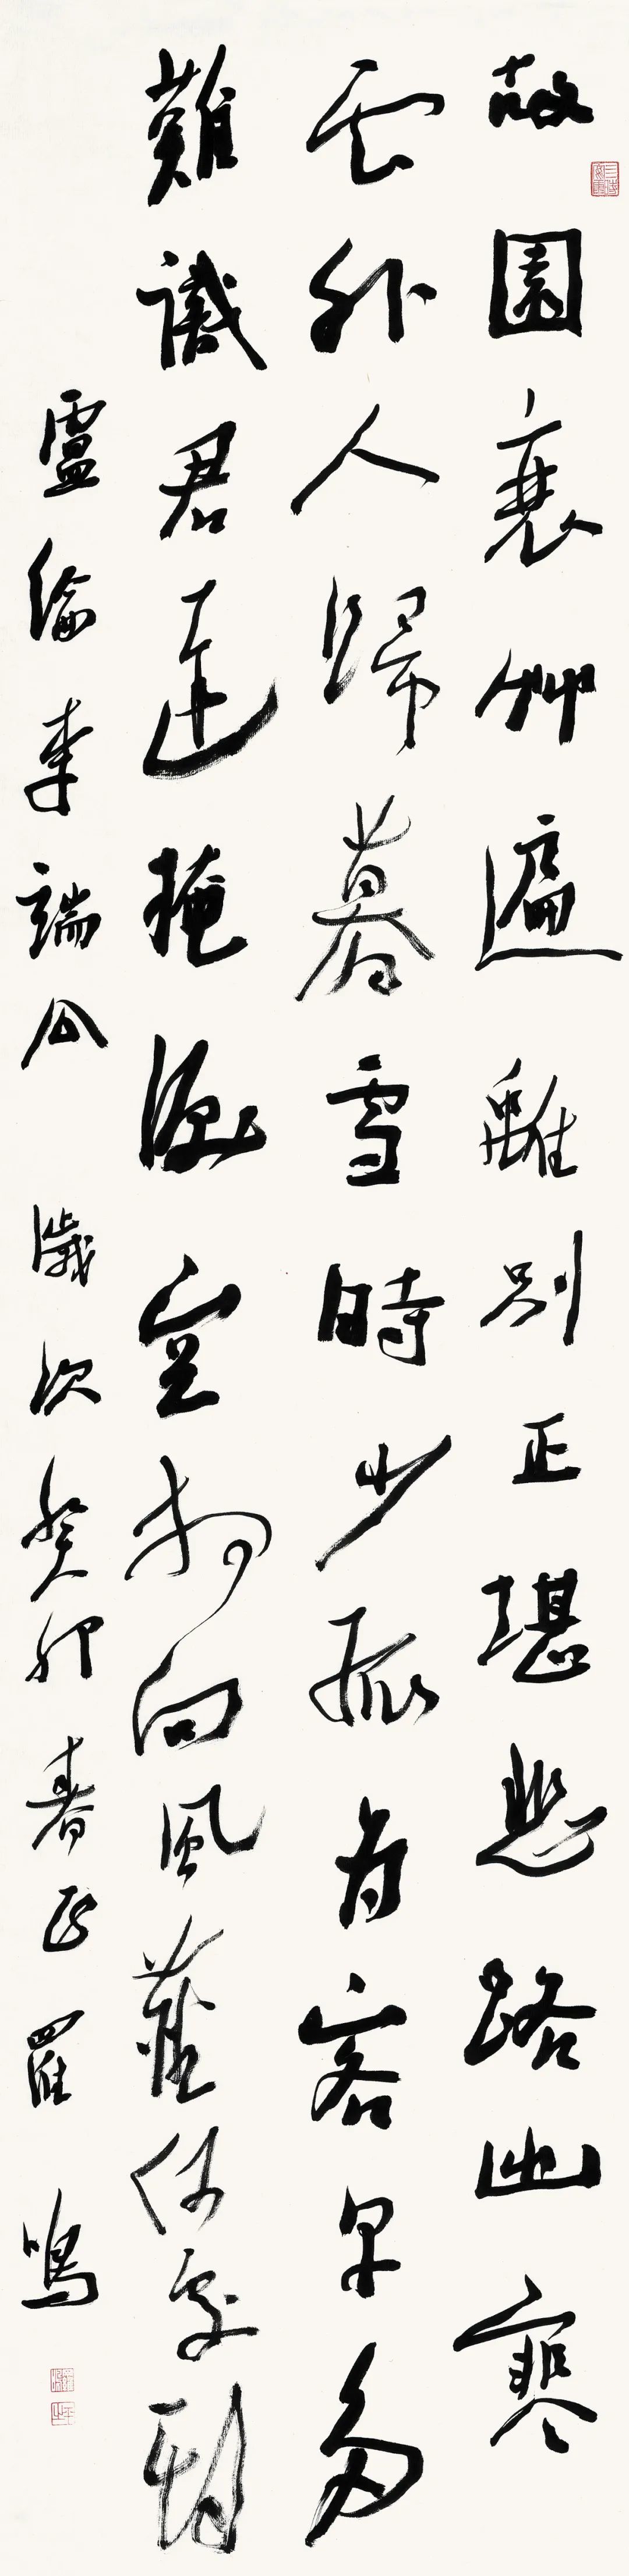 故園衰艸遍離別正堪悲路出寒
云外人歸暮雪時少孤為客早多
難識君遲掩淚空相向風塵何處期
盧綸李端公 歲次癸卯春正羅鳴